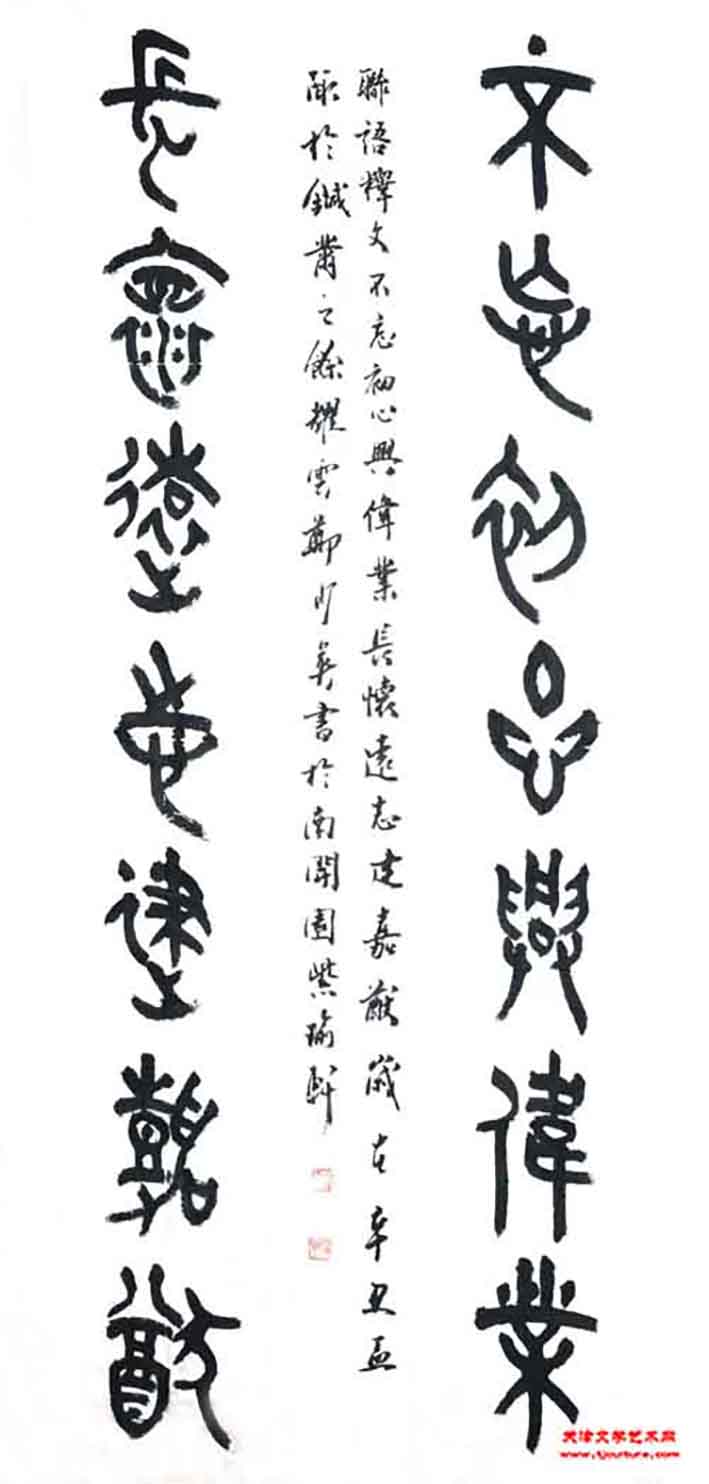 不忘初心興偉業
聯語釋文不忘初心興偉業長懷遠志建嘉猷歲在辛丑孟
於鍼黹之餘耀雲鄭書於南開園紫瑜軒
長懷遠志建嘉猷
天津文学艺术网